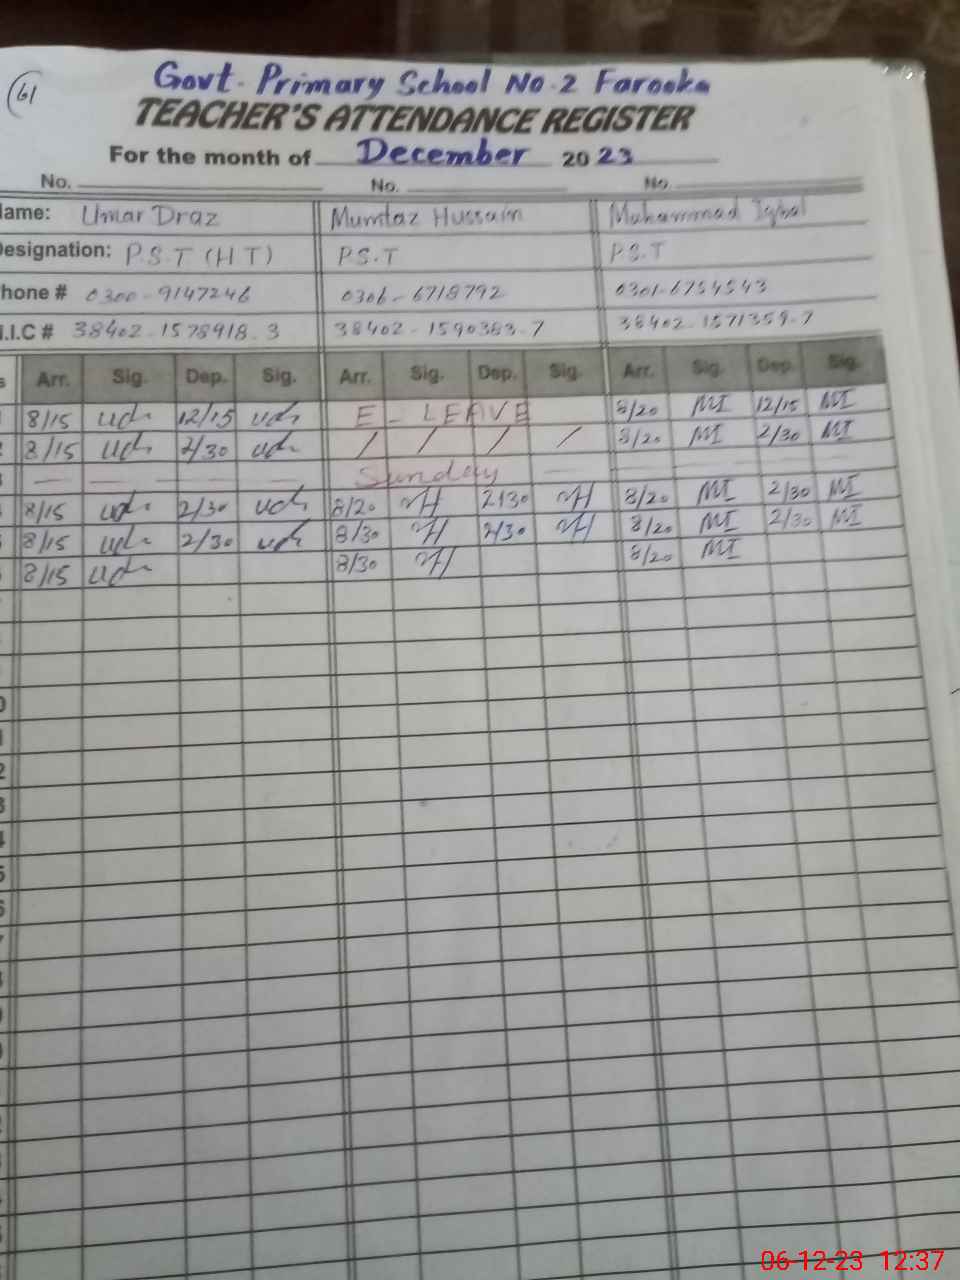 61
Govt. Primary School No.2 Farooka
TEACHER'S ATTENDANCE REGISTER
For the month of December 2023
No. No. No.
ame: Umar Draz Mumtaz Hussain Muhammad Iqbal
esignation: P.S.T (H T) P.S.T P.S.T
hone # 0300-9147246 0306-6718792 0301-6754543
.I.C # 38402-1578918-3 38402-1590383-7 38402-1571359-7
s Arr. Sig. Dep. Sig. Arr. Sig. Dep. Sig. Arr. Sig. Dep. Sig.
8/15 12/15 E-LEAVE 8/20 MI 12/15 MI
8/15 2/30 / / / / 8/20 MI 2/30 MI
Sunday
8/15 2/30 8/20 2130 8/20 MI 2/30 MI
8/15 2/30 8/30 2/30 8/20 MI 2/30 MI
8/15 8/30 8/20 MI
06-12-23 12:37